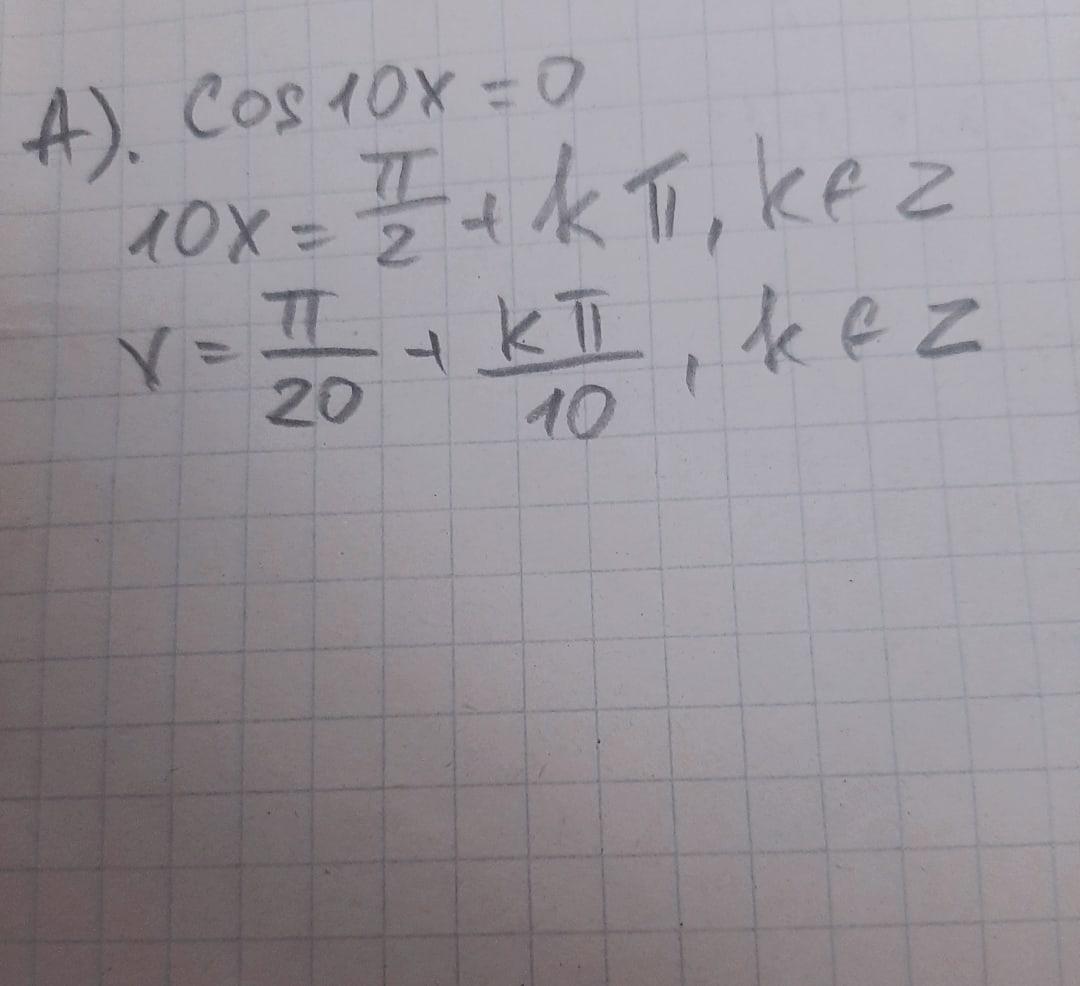 A). cos 10x = 0
10x = π/2 + kπ, k ∈ Z
x = π/20 + kπ/10, k ∈ Z